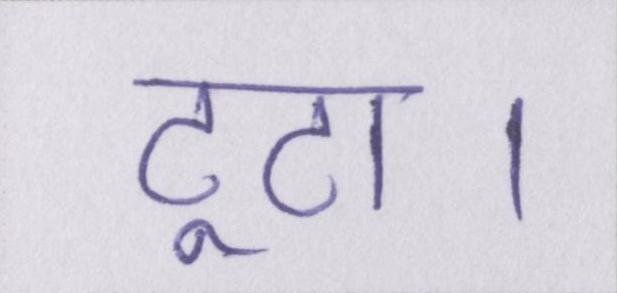 टूटा ।